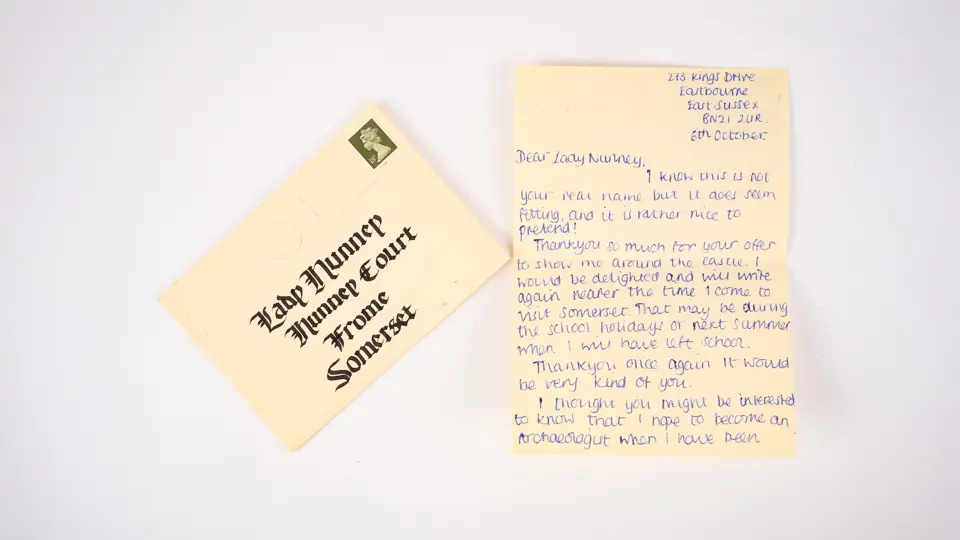 Lady Nunney
Nunney Court
Frome
Somerset
273 Kings Drive
Eastbourne
East Sussex
BN21 2UR.
6th October.
Dear Lady Nunney,
I know this is not
your real name but it does seem
fitting, and it is rather nice to
pretend!
Thankyou so much for your offer
to show me around the castle. I
would be delighted and will write
again nearer the time I come to
visit Somerset. That may be during
the school holidays or next summer
when I will have left school.
Thankyou once again it would
be very kind of you.
I thought you might be interested
to know that I hope to become an
Archaeologist when I have been